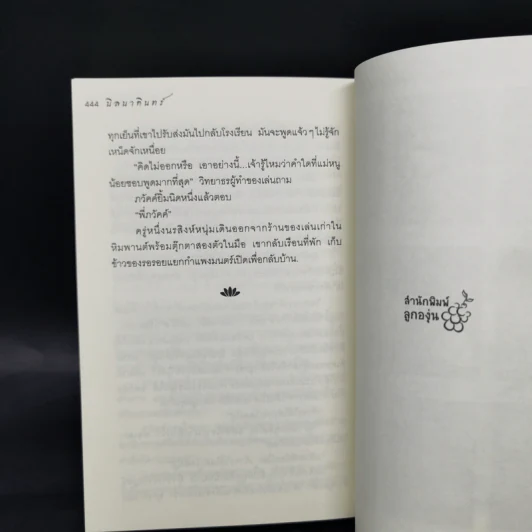 444 มิลมาศินตร์
ทุกเย็นที่เขาไปรับส่งมันไปกลับโรงเรียน มันจะพูดแจ้วๆ ไม่รู้จัก
เหนื่อยจักเหนื่อย
"คิดไม่ออกหรือ เอาอย่างนี้...เจ้ารู้ไหมว่าคำใดที่แม่หนู
น้อยชอบพูดมากที่สุด" วิทยาธรผู้ทำของเล่นถาม
ภวัคค์ยิ้มนิดหนึ่งแล้วตอบ
"พี่ภวัคค์"
ครู่หนึ่งนรสิงห์หนุ่มเดินออกจากร้านของเล่นเก่าใน
หิมพานต์พร้อมตุ๊กตาสองตัวในมือ เขากลับเรือนที่พัก เก็บ
ข้าวของรอรอยแยกกำแพงมนตร์เปิดเพื่อกลับบ้าน
สำนักพิมพ์
ลูกองุ่น